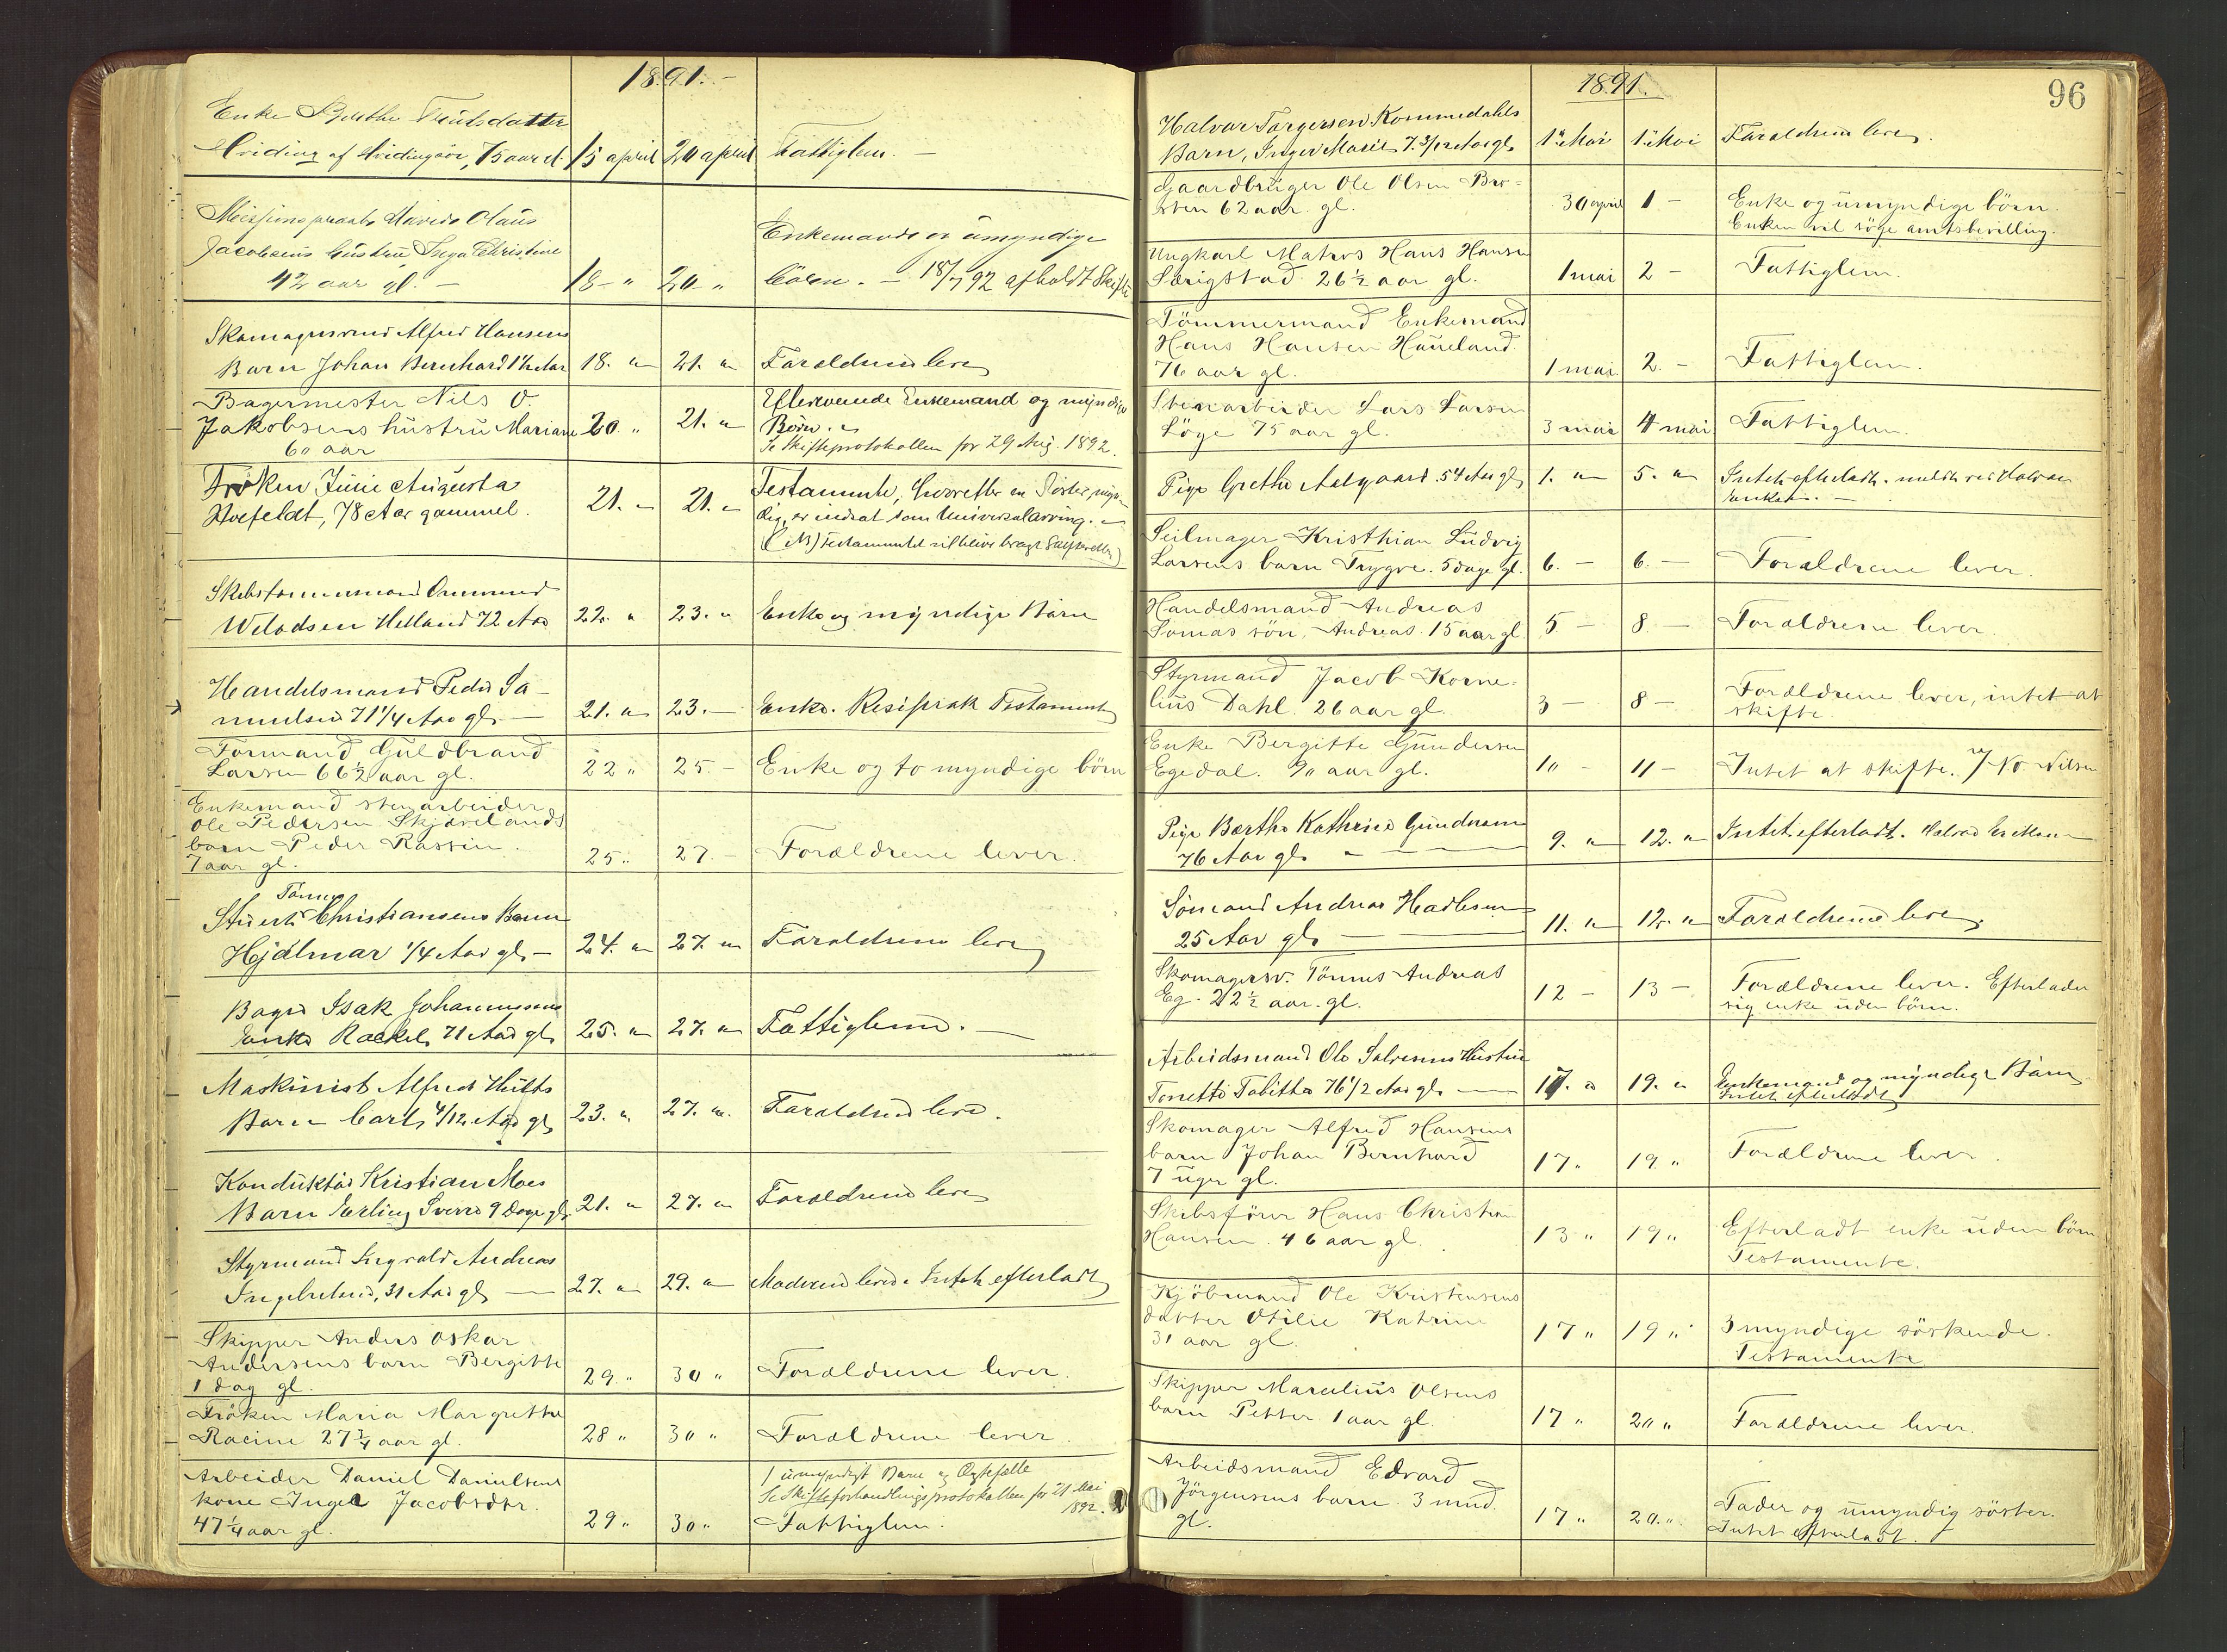 1891.-
Enke Berthe Knutsdatter
Hviding af Hvidingsöe, 75 aar gl. 15 april 20 april Fattiglem. -
Missionspræst Olaus
Jacobsens hustru Inga Christine
42 aar gl. - 18 - " 20 - "
Enkemand og umyndige
börn. - 18/7 92 afholdt Skifte
Skomagersvend Alfred Hansens
Barn Johan Bernhard 18. " 21. " Forældrene lever
Bagermester Nils O.
Jakobsens hustru Mariane 20. " 21. "
60 aar
Efterlevende Enkemand og myndige
Börn. "
Se Skifteprotokollen for 29 Aug. 1892.
Fröken Julie Augusta
Hvefeldt, 78 Aar gammel. 21. " 21. "
Testamente, hvorefter en Söster, myn-
dig, er indsat som Universalarving. -
(NB) Testamentet vil blive bragt Skifteretten)
Skibstømmermand Ommund
Weladsen Helland 72 Aar 22. " 23. " Enke og myndige Börn
Handelsmand Peder Sa-
muelsen 71 1/4 Aar gl. - 21. " 23. - Enke. Resiprok Testament
Formand Guldbrand
Larsen 66 1/2 aar gl. 22 " 25. - Enke og to myndige börn
Enkemand stenarbeider
Ole Pedersen Skjævelands
barn Peder Rassin.
7 aar gl. 25 " 27. - Forældrene lever.
Tönnes
Stuert Christiansens Barn
Hjalmar 1/4 Aar gl. - 24. " 27. " Forældrene lever
Bager Isak Johannessens
Enke Rachel 71 Aar gl. 25. " 27. " Fattiglem. -
Maskinist Alfred Hults
Barn Carl, 4/12 Aar gl. 23. " 27. " Forældrene lever.
Konduktör Kristian Moes
Barn Erling Sverre 9 Dage gl. 21. " 27. " Forældrene lever
Styrmand Ingvald Andreas
Ingebretsen, 31 Aar gl. - 27. " 29. " Moderen lever. Intet efterladt
Skipper Anders Oskar
Andersens barn Bergitte
1 dag gl. 29. " 30 " Forældrene lever.
Fröken Maria Margrethe
Racine 27 3/4 aar gl. 28 " 30 " Forældrene lever.
Arbeider Daniel Danielsens
kone Inger Jacobsdtr.
47 1/4 aar gl. 29 " 30 "
1 umyndigt Barn og Ægtefælle
Se Skifteforhandlingsprotokollen for 21 Mai
1892.
Fattiglem.
96
1891.
Halvar Torgersen Kommedahls
Barn, Inger Marie 7 3/12 Aar gl. 1ste Mai 1ste Mai Forældrene lever.
Gaardbruger Ole Olsen Bro-
sten 62 aar. gl. 30 april 1 -
Enke og umyndige börn.
Enken vil söge amtsbevilling.
Ungkarl Matros Hans Hansen
Særigstad 26 1/2 aar gl. 1 mai 2 - Fattiglem.
Tömmermand Enkemand
Hans Hansen Haueland.
76 aar gl. 1 mai 2. - Fattiglem.
Stenarbeider Lars Larsen
Löge 75 aar gl. 3 mai 4 mai Fattiglem.
Pige Grethe Aalgaard 54 Aar gl. 1. " 5. "
Intet efterladt. meldt ved Halvar
Seilmager Kristhian Ludvig
Larsens barn Trygve. 5 dage gl. 6. - 6. - Forældrene lever.
Handelsmand Andreas
Somas sön, Andreas. 15 aar gl. 5. - 8 - Forældrene lever.
Styrmand Jacob Korne-
lius Dahl. 26 aar gl. 3 - 8 -
Forældrene lever, intet at
skifte
Enke Bergitte Gundersen
Egedal. 90 aar gl. 10 - 11 - Intet at skifte. Nilsen
Pige Berthe Kathrine Gundersen
76 Aar gl. - 9. " 12. " Intet efterladt.
Sömand Andreas Hadlesen
25 Aar gl. - 11. " 12. " Forældrene lever.
Skomagersv. Tönnes Andreas
Eg. 22 1/2 aar. gl. 12 - 13 -
Forældrene lever. Efterlader
sig enke uden börn.
Arbeidsmand Ole Salvesens Hustru
Tonette Tabitha 76 1/2 Aar gl. - 17. " 19. "
Enkemand og myndige Börn
Intet efterladt
Skomager Alfred Hansens
barn Johan Bernhard
7 uger gl. 17 " 19 " Forældrene lever.
Skibsförer Hans Christian
Hansen. 46 aar gl. 13 " 19 "
Efterladt enke uden börn
Testamente.
Kjöbmand Ole Kristensens
datter Otilie Katrine
31 aar gl. 17 " 19 "
3 myndige söskende.
Testamente
Skipper Marcelius Olsens
barn Petter. 1 aar gl. 17 " 20 " Forældrene lever.
Arbeidsmand Edvard
Jörgensens barn. 3 mnd.
gl. 17 " 20. "
Fader og umyndig söster.
Intet efterladt.